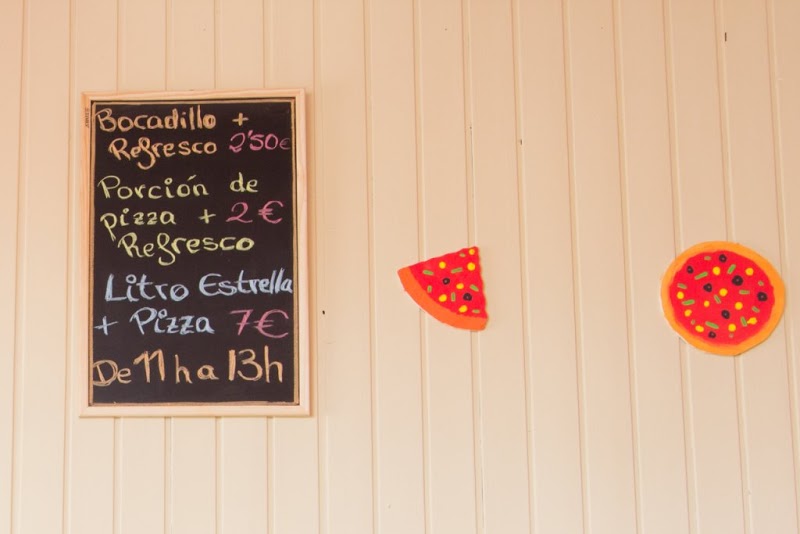 Bocadillo +
Refresco 2'50€
Porción de
pizza + 2€
Refresco
Litro Estrella
+ Pizza 7€
De 11h a 13h